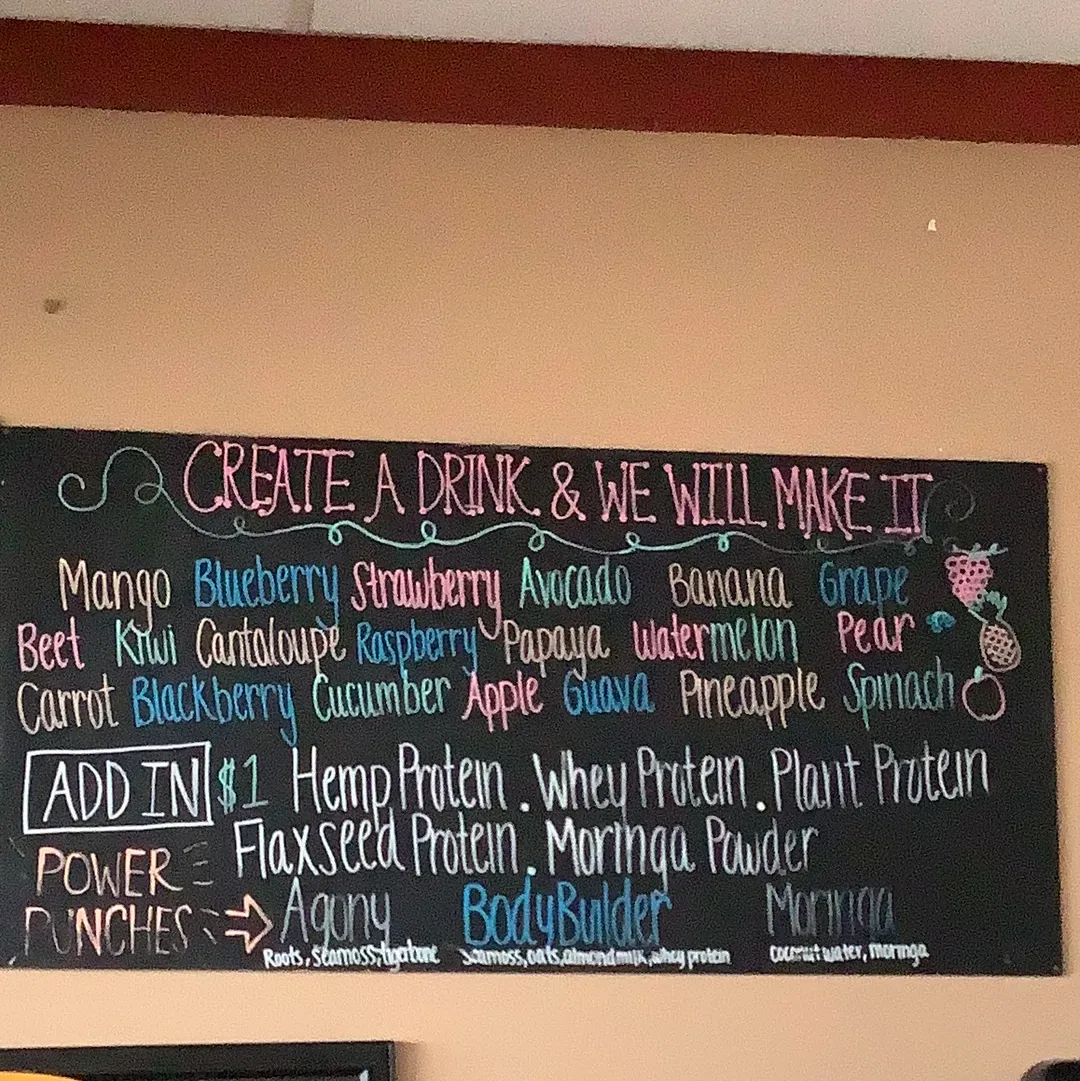 CREATE A DRINK & WE WILL MAKE IT
Mango Blueberry Strawberry Avocado Banana Grape
Beet Kiwi Cantaloupe Raspberry Papaya Watermelon Pear
Carrot Blackberry Cucumber Apple Guava Pineapple Spinach
ADD IN $1 Hemp Protein . Whey Protein . Plant Protein
Flaxseed Protein . Moringa Powder
POWER
PUNCHES Agony BodyBuilder Moringa
Roots, seamoss, tigerbone seamoss, oats, almond milk, whey protein coconut water, moringa